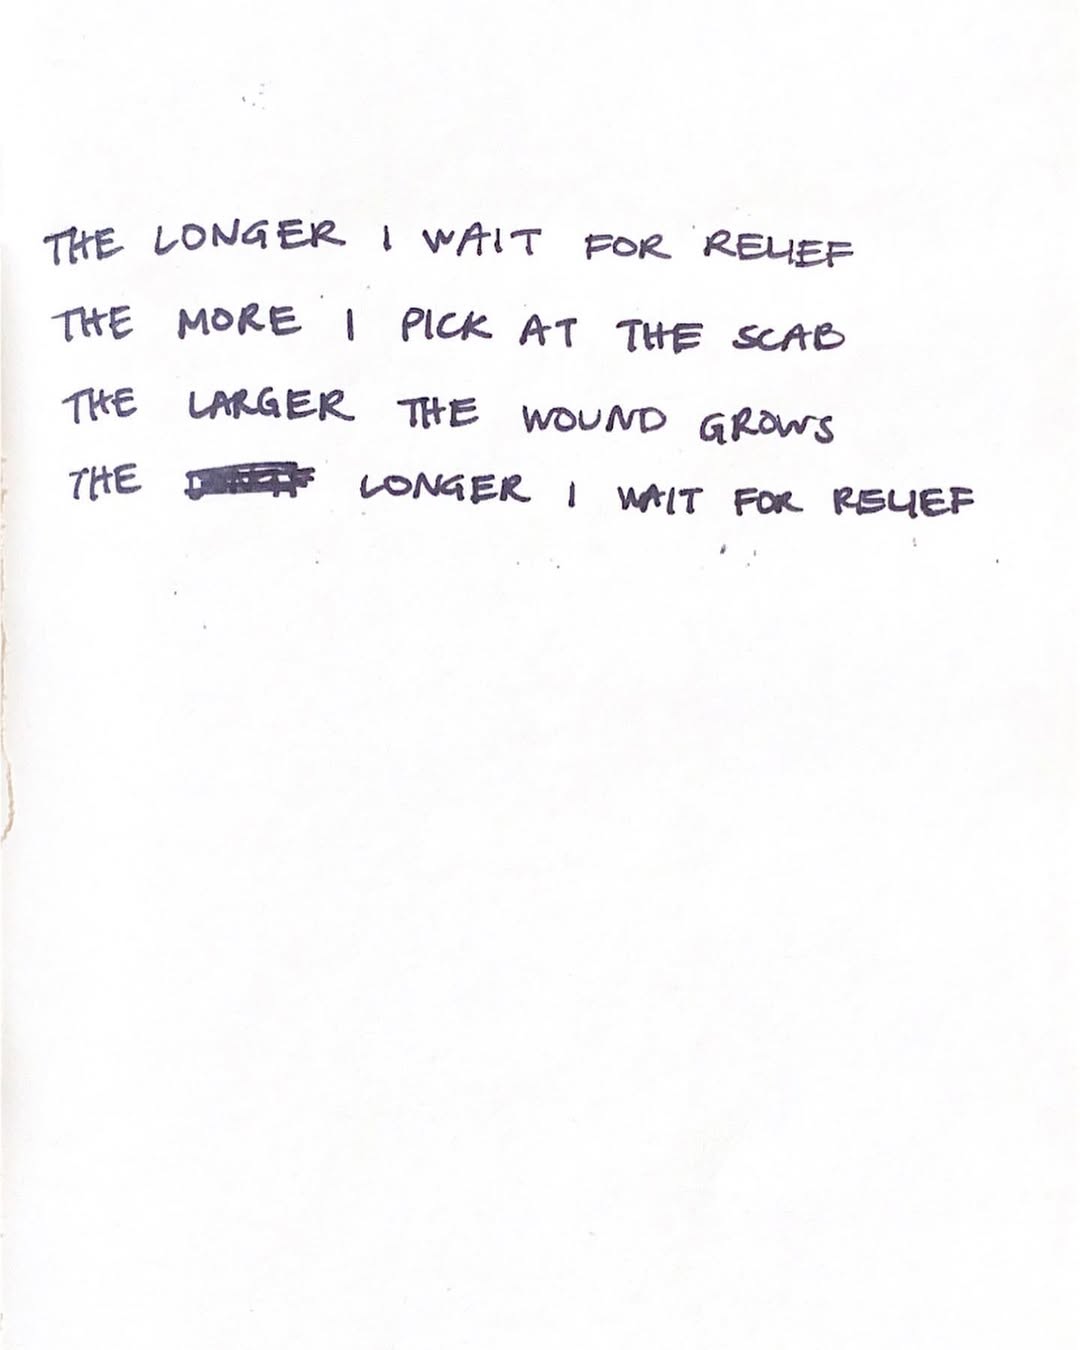 THE LONGER I WAIT FOR RELIEF
THE MORE I PICK AT THE SCAB
THE LARGER THE WOUND GROWS
THE LONGER I WAIT FOR RELIEF